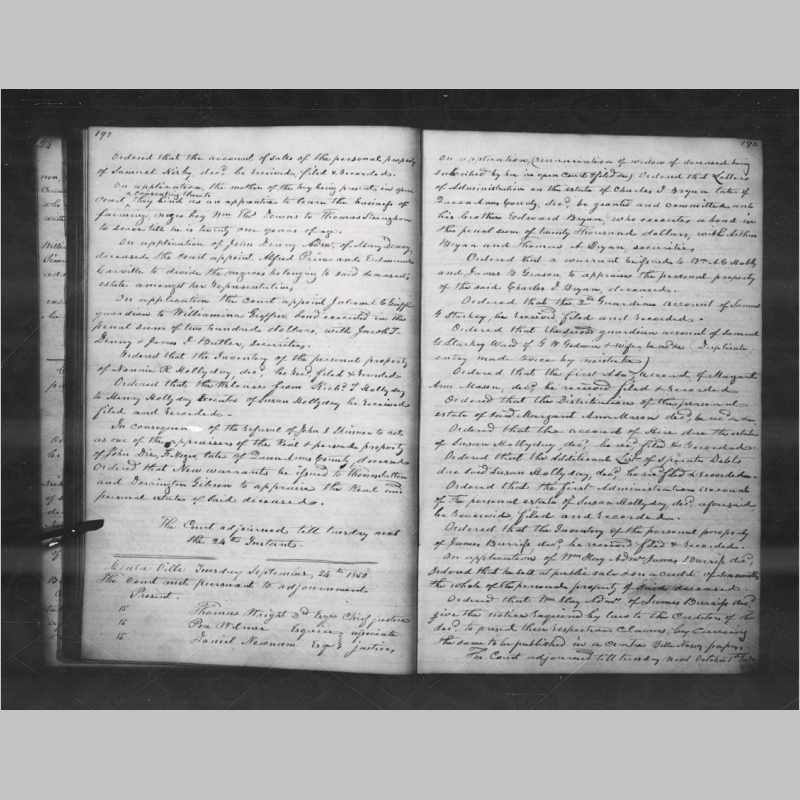 192
Ordered that the account of sales of the personal property
of Samuel Kirby decd. be received, filed & Recorded.
On application, the mother of the boy being present in open
consenting thereto
Court, they bind as an apprentice to learn the business of
farming, negro boy Wm Thos Towns to Thomas
to serve till he is twenty one years of age.
On application of John Denny Admr. of Mary Denny,
deceased the court appoint Alfred Price and Edmund
to divide the negroes belonging to said deceased,
estate amongst her representatives,
On application the court appoint Juliana C Griffin
guardian to Williamina Griffin, bond executed in the
penal sum of two hundred dollars, with Jacob T.
Denny & James I Butler, securities.
Ordered that the Inventory of the personal property
of Nannie R Hollyday, decd. be recd filed & recorded
Ordered that the Releases from Richd. T Hollyday
to Henry Hollyday Executor of Susan Hollyday be received
filed and recorded.
In consequence of the refusal of John S Skinner to act
as one of the appraisers of the Real & personal property
of John late of Queen Anns County, deceased
Ordered that New warrants be issued to Thomas Sutton
and Gibson to appraise the Real and
personal estates of said deceased.
The Court adjourned till tuesday next
the 24th Instants
Centre Ville Tuesday September, 24th 1850
The Court met pursuant to adjournment
Present.
15 Thomas Wright 3d Esqre Chief justice
15 Pere Wilmer Esquire associate
15 Daniel Newnam Esqr justices
On application, (renunciation of widow of deceased being
subscribed by her in open Court & filed) Ordered that Letters
of Administration on the estate of Charles I Bryan late of
Queen Anns County, decd, be granted and committed unto
his brother Edward Bryan, who executes a bond in
the penal sum of twenty thousand dollars, with Arthur
Bryan and Thomas A Bryan, securities,
Ordered that a warrant be issued to Wm
and James B Grason to appraise the personal property
of the said Charles I Bryan, deceased.
Ordered that the 2nd Guardian account of Samuel
G Starkey, be received filed and recorded.
Ordered that the guardian account of Samuel
G Starkey Ward of G W Godwin & wife be (Duplicate
entry made twice by mistake)
Ordered that the first Admn Account of Margaret
Ann Mason, decd, be received filed & recorded
Ordered that the Distribution of the personal
estate of said Margaret Ann Mason decd, be
Ordered that the account of Hire due the estate
of Susan Hollyday, decd, be recd filed & recorded.
Ordered that the Additional List of sperate Debts
due said Susan Hollyday, decd, be recd filed & recorded.
Ordered that the first Administration account
of the personal estate of Susan Hollyday decd, aforesaid
be received, filed and recorded.
Ordered that the Inventory of the personal property
of James Burriss decd, be received filed & recorded.
On application of Wm Hay Admr James Burriss decd,
Ordered that he sell at public sale & on a credit of months
the whole of the personal property of said deceased.
Ordered that Wm Hay Admr. of James Burriss decd
give the notice required by law to the Creditors of the
decd. to present their respective claims, by causing
the same to be published in a Centre Ville News paper.
The Court adjourned till tuesday next October 1st